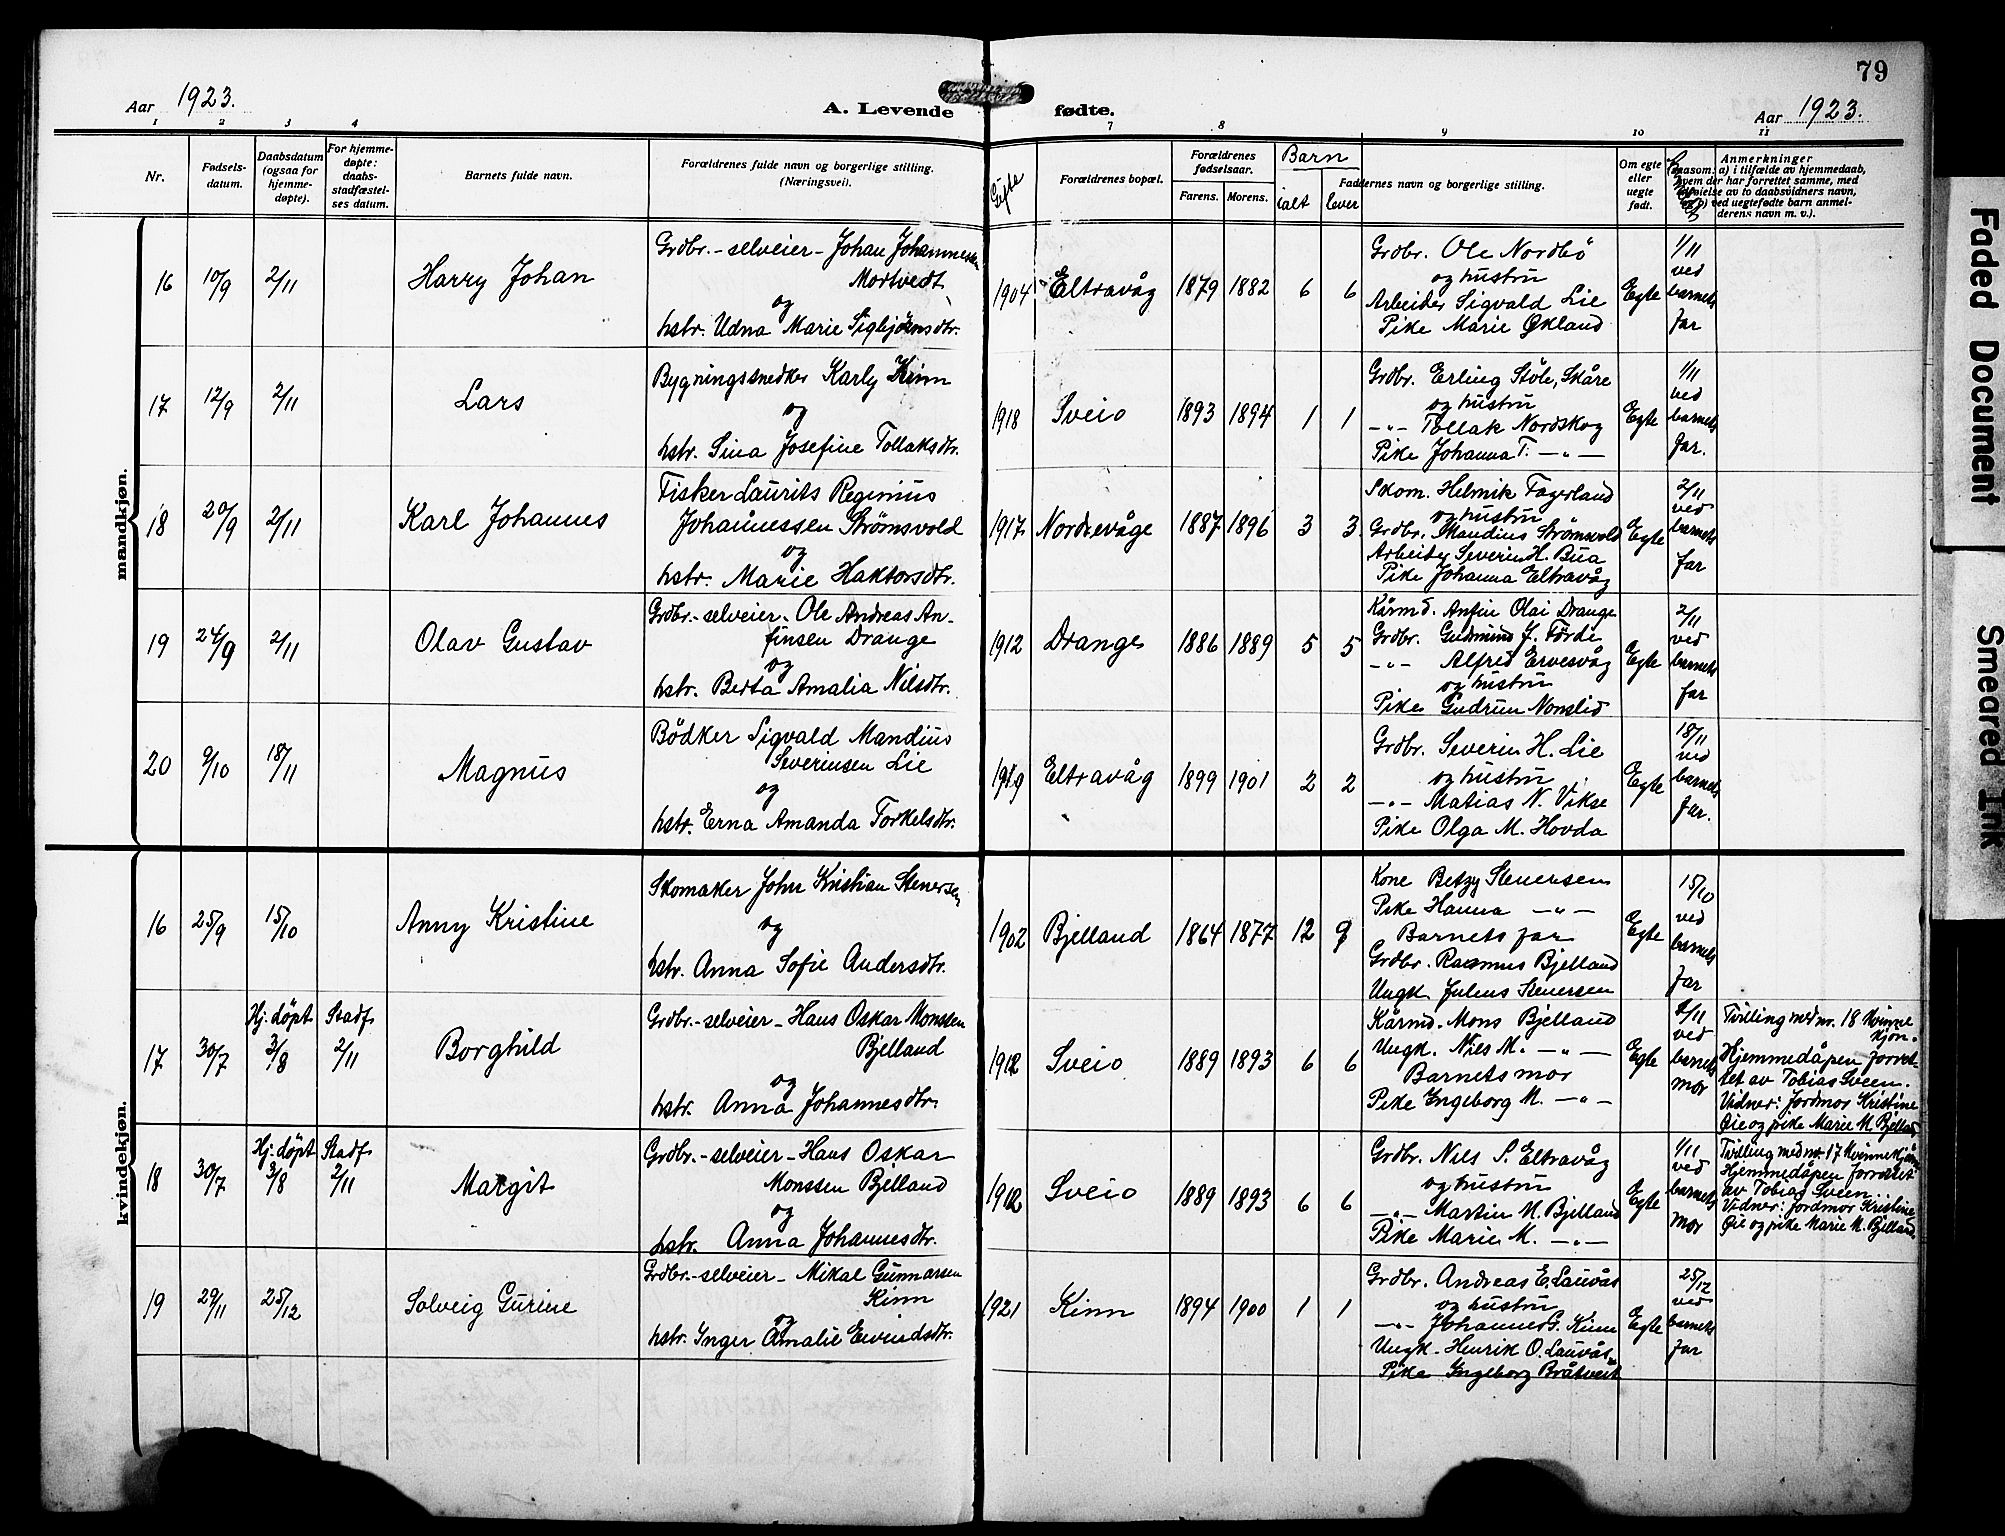 79
Aar 1923.
A. Levende fødte.
Aar 1923.
1 2 3 4 7 8 9 10 11
Nr.
Fødsels-
datum.
Daabsdatum
(ogsaa for
hjemme-
døpte).
For hjemme-
døpte:
daabs-
stadfæstel-
ses datum.
Barnets fulde navn.
Forældrenes fulde navn og borgerlige stilling.
(Næringsvei).
Gifte
Forældrenes bopæl.
Forældrenes
fødselsaar.
Farens. Morens.
Barn
ialt lever
Faddernes navn og borgerlige stilling.
Om egte
eller
uegte
født.
Anmerkninger
(saasom: a) i tilfælde av hjemmedaab,
hvem der har forrettet samme, med
tilføielse av to daabsvidners navn,
b) ved uegtefødte barn anmel-
derens navn m. v.).
mandkjøn.
16 10/9 2/11 Harry Johan
Grdbr.-selveier- Johan Johannessen
Mortvedt
og
hstr. Udna Marie Sigbjørnsdtr.
1904 Eltravåg 1879 1882 6 6
Grdbr. Ole Nordbö
og hustru
Arbeider Sigvald Lie
Pike Marie Økland
Egte
1/11
ved
barnets
far
17 12/9 2/11 Lars
Bygningssnedker Karly Kinn
og
hstr. Sina Josefine Tollaksdtr.
1918 Sveio 1893 1894 1 1
Grdbr. Erling Støle, Skåre
og hustru
-"- Tollak Nordskog
Pike Johanna T. -"-
Egte
1/11
ved
barnets
far.
18 20/9 2/11 Karl Johannes
Fisker Laurits Reginius
Johannessen Strømsvold
og
hstr. Marie Haktorsdtr.
1917 Nordrevåge 1887 1896 3 3
Skom. Helmik Fagerland
og hustru
Grdbr. Mandius Strømsvold
Arbeider Severin H. Bua
Pike Johanna Eltravåg
Egte
2/11
ved
barnets
far
19 24/9 2/11 Olav Gustav
Grdbr.-selveier- Ole Andreas An-
finsen Drange
og
hstr. Berta Amalia Nilsdtr.
1912 Drange 1886 1889 5 5
Kårmd. Anfin Olai Drange
Grdbr. Gudmund J. Förde
-"- Alfred Ervesvåg
og hustru
Pike Gudrun Nonslid
Egte
2/11
ved
barnets
far
20 9/10 18/11 Magnus
Bödker Sigvald Mandius
Severinsen Lie
og
hstr. Erna Amanda Torkelsdtr.
1919 Eltravåg 1899 1901 2 2
Grdbr. Severin H. Lie
og hustru
-"- Matias N. Vikse
Pike Olga M. Hovda
Egte
18/11
ved
barnets
far.
kvindekjøn.
16 25/9 15/10 Anny Kristine
Skomaker John Kristian Stenersen
og
hstr. Anna Sofie Andersdtr.
1902 Bjelland 1864 1877 12 9
Kone Betzy Stenersen
Pike Hanna -"-
Barnets far
Grdbr. Rasmus Bjelland
Ungk. Julius Stenersen
Egte
15/10
ved
barnets
far
17 30/7 Hj. döpt 3/8 Stadf. 2/11 Borghild
Grdbr.-selveier- Hans Oskar Monssen
Bjelland
og
hstr. Anna Johannesdtr.
1912 Sveio 1889 1893 6 6
Kårmd. Mons Bjelland
Ungk. Nils M. -"-
Barnets mor
Pike Ingeborg M. -"-
Egte
1/11
ved
barnets
mor
Tvilling med nr. 18 kvinne-
kjön.
Hjemmedåpen forret-
tet av Tobias Sveen.
Vidner: Jordmor Kristine
Øie og pike Marie M. Bjelland
18 30/7 Hj. döpt 3/8 Stadf. 2/11 Margit
Grdbr.-selveier- Hans Oskar
Monssen Bjelland
og
hstr. Anna Johannesdtr.
1912 Sveio 1889 1893 6 6
Grdbr. Nils S. Eltravåg
og hustru
-"- Martin M. Bjelland
Pike Marie M. -"-
Egte
1/11
ved
barnets
mor
Tvilling med nr. 17 kvinnekjön
Hjemmedåpen forrettet
av Tobias Sveen.
Vidner: Jordmor Kristine
Øie og pike Marie M. Bjelland
19 29/11 25/12 Solveig Gurine
Grdbr.-selveier- Mikal Gunnarsen
Kinn
og
hstr. Inger Amalie Eivindsdtr.
1921 Kinn 1894 1900 1 1
Grdbr. Andreas E. Lauvås
og hustru
-"- Johannes G. Kinn
Ungk. Henrik O. Lauvås
Pike Ingeborg Bråtveit
Egte
25/12
ved
barnets
far
Faded Document
Smeared Ink